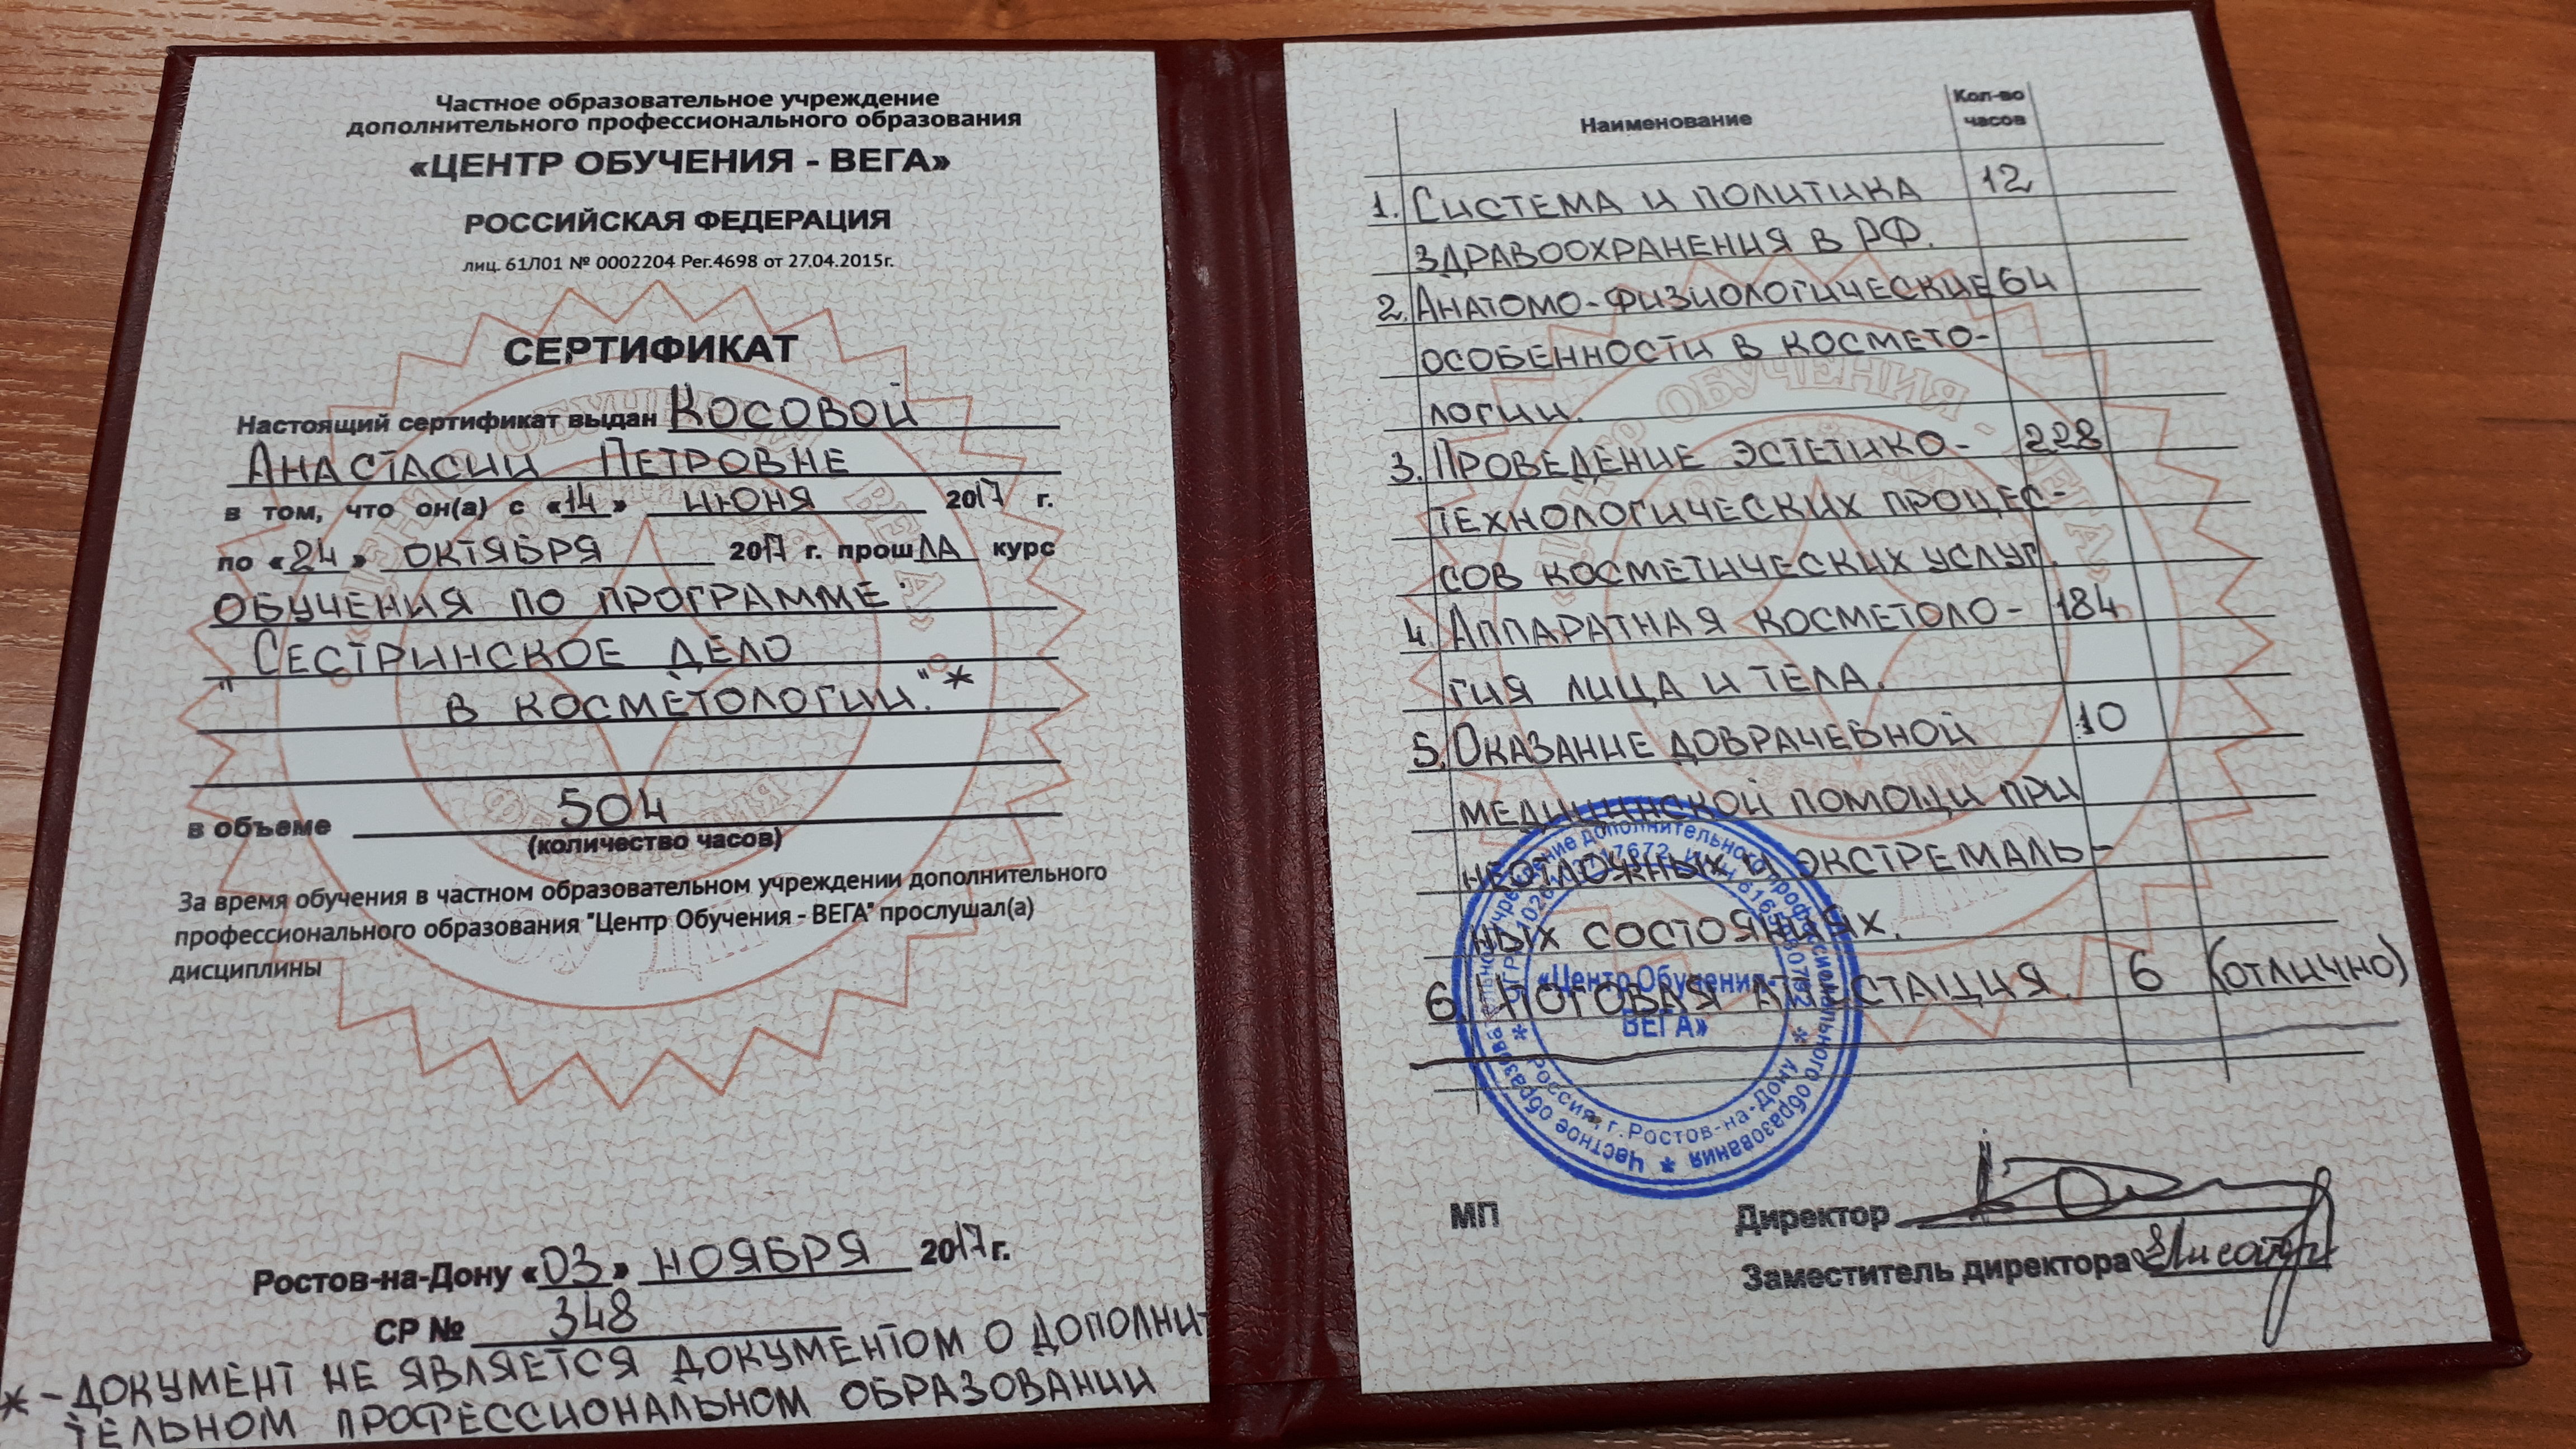 Частное образовательное учреждение
дополнительного профессионального образования
«ЦЕНТР ОБУЧЕНИЯ - ВЕГА»
РОССИЙСКАЯ ФЕДЕРАЦИЯ
лиц. 61Л01 № 0002204 Рег.4698 от 27.04.2015г.
СЕРТИФИКАТ
Настоящий сертификат выдан Косовой
Анастасии Петровне
в том, что он(а) с «14» июня 2017 г.
по «24» октября 2017 г. прошла курс
обучения по программе:
"Сестринское дело
в косметологии."*
в объеме 504
(количество часов)
За время обучения в частном образовательном учреждении дополнительного
профессионального образования "Центр Обучения - ВЕГА" прослушал(а)
дисциплины
Ростов-на-Дону «03» ноября 2017г.
СР № 348
* - документ не является документом о дополни-
тельном профессиональном образовании
Наименование Кол-во
часов
1. Система и политика 12
здравоохранения в РФ.
2. Анатомо-физиологические 64
особенности в космето-
логии.
3. Проведение эстетико- 228
технологических процес-
сов косметических услуг.
4. Аппаратная косметоло- 184
гия лица и тела.
5. Оказание доврачебной 10
медицинской помощи при
неотложных и экстремаль-
ных состояниях.
6. Итоговая аттестация. 6 (отлично)
«Центр Обучения -
ВЕГА»
Россия, г.Ростов-на-Дону
Частное образовательное учреждение дополнительного профессионального образования
МП Директор
Заместитель директора